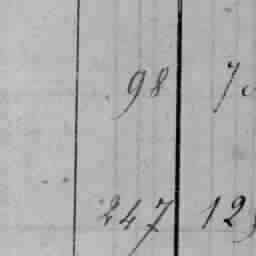 98 7
247 12